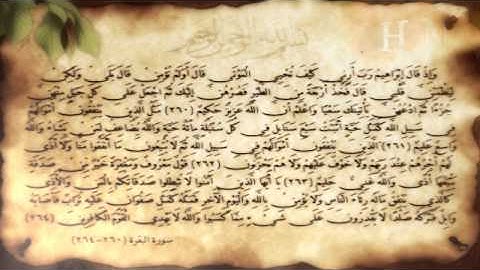 بسم الله الرحمن الرحيم
H
وَإِذْ قَالَ إِبْرَاهِيمُ رَبِّ أَرِنِي كَيْفَ تُحْيِي الْمَوْتَى قَالَ أَوَلَمْ تُؤْمِنْ قَالَ بَلَى وَلَكِنْ
لِيَطْمَئِنَّ قَلْبِي قَالَ فَخُذْ أَرْبَعَةً مِنَ الطَّيْرِ فَصُرْهُنَّ إِلَيْكَ ثُمَّ اجْعَلْ عَلَى كُلِّ جَبَلٍ مِنْهُنَّ
جُزْءًا ثُمَّ ادْعُهُنَّ يَأْتِينَكَ سَعْيًا وَاعْلَمْ أَنَّ اللَّهَ عَزِيزٌ حَكِيمٌ (٢٦٠) مَثَلُ الَّذِينَ يُنْفِقُونَ أَمْوَالَهُمْ
فِي سَبِيلِ اللَّهِ كَمَثَلِ حَبَّةٍ أَنْبَتَتْ سَبْعَ سَنَابِلَ فِي كُلِّ سُنْبُلَةٍ مِائَةُ حَبَّةٍ وَاللَّهُ يُضَاعِفُ لِمَنْ يَشَاءُ وَاللَّهُ
وَاسِعٌ عَلِيمٌ (٢٦١) الَّذِينَ يُنْفِقُونَ أَمْوَالَهُمْ فِي سَبِيلِ اللَّهِ ثُمَّ لَا يُتْبِعُونَ مَا أَنْفَقُوا مَنًّا وَلَا أَذًى
لَهُمْ أَجْرُهُمْ عِنْدَ رَبِّهِمْ وَلَا خَوْفٌ عَلَيْهِمْ وَلَا هُمْ يَحْزَنُونَ (٢٦٢) قَوْلٌ مَعْرُوفٌ وَمَغْفِرَةٌ خَيْرٌ مِنْ صَدَقَةٍ
يَتْبَعُهَا أَذًى وَاللَّهُ غَنِيٌّ حَلِيمٌ (٢٦٣) يَا أَيُّهَا الَّذِينَ آمَنُوا لَا تُبْطِلُوا صَدَقَاتِكُمْ بِالْمَنِّ وَالْأَذَى
كَالَّذِي يُنْفِقُ مَالَهُ رِئَاءَ النَّاسِ وَلَا يُؤْمِنُ بِاللَّهِ وَالْيَوْمِ الْآخِرِ فَمَثَلُهُ كَمَثَلِ صَفْوَانٍ عَلَيْهِ تُرَابٌ فَأَصَابَهُ
وَابِلٌ فَتَرَكَهُ صَلْدًا لَا يَقْدِرُونَ عَلَى شَيْءٍ مِمَّا كَسَبُوا وَاللَّهُ لَا يَهْدِي الْقَوْمَ الْكَافِرِينَ (٢٦٤)
سورة البقرة (٢٦٠-٢٦٤)